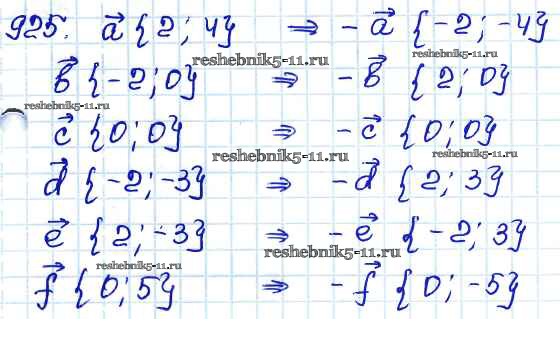 925. a⃗ {2; 4} ⇒ -a⃗ {-2; -4}
reshebnik5-11.ru
reshebnik5-11.ru
b⃗ {-2; 0} ⇒ -b⃗ {2; 0}
reshebnik5-11.ru
c⃗ {0; 0} ⇒ -c⃗ {0; 0}
reshebnik5-11.ru
reshebnik5-11.ru
d⃗ {-2; -3} ⇒ -d⃗ {2; 3}
e⃗ {2; -3} ⇒ -e⃗ {-2; 3}
reshebnik5-11.ru
reshebnik5-11.ru
f⃗ {0; 5} ⇒ -f⃗ {0; -5}